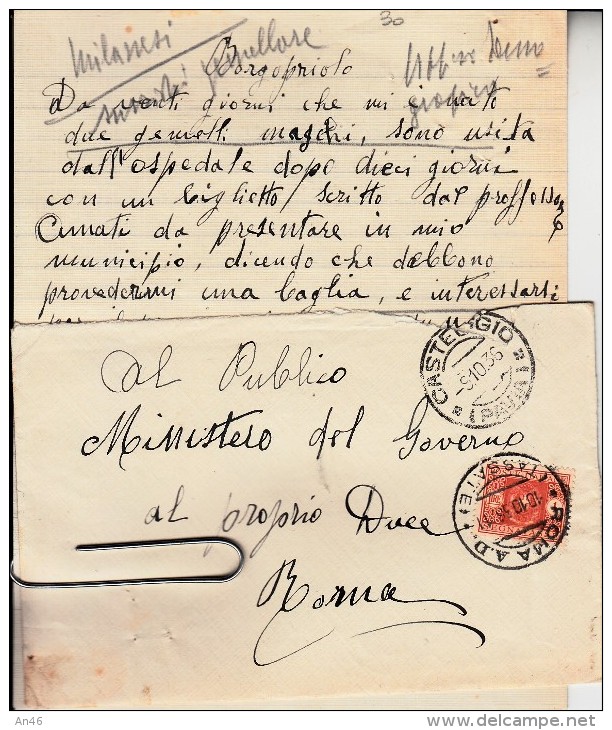 30
Milanesi
Borgopriolo
Da venti giorni che mi è nato
due gemelli maschi, sono usita
dall'ospedale dopo dieci giorni
con un biglietto scritto dal proffessore
Cunati da presentare in mio
municipio, dicendo che debbono
provedermi una baglia, e interessarsi
CASTEGGIO
-9.10.36
(PAVIA)
Al Publico
Ministero del Governo
al proprio Duce
Roma
ROMA A.D. (TASSATE)
10.10.36
An46
www.delcampe.net